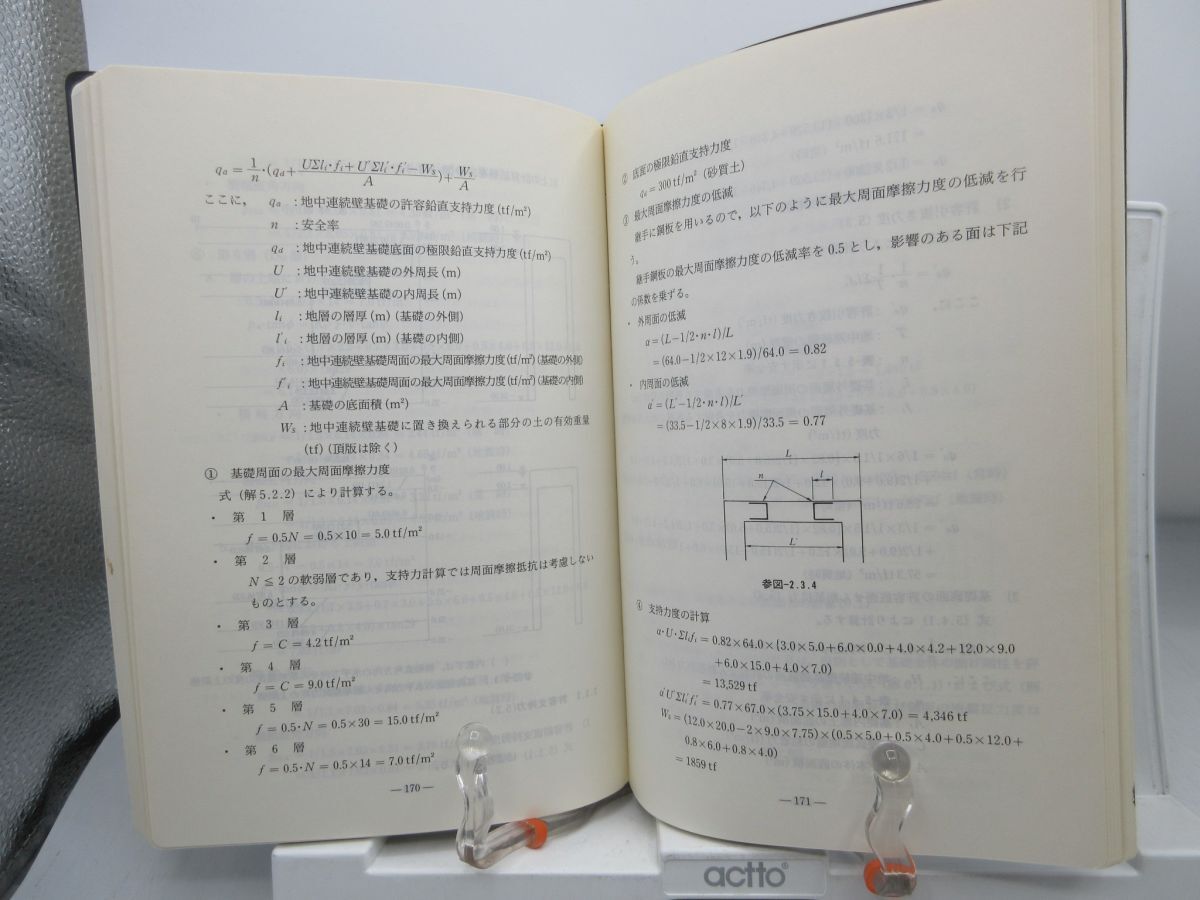 qa = 1/n・(qd + (UΣli・fi+U′Σl′i・f′i−Ws)/A) + Ws/A
ここに， qa ：地中連続壁基礎の許容鉛直支持力度(tf/m²)
n ：安全率
qd ：地中連続壁基礎底面の極限鉛直支持力度(tf/m²)
U ：地中連続壁基礎の外周長(m)
U′ ：地中連続壁基礎の内周長(m)
li ：地層の層厚(m)(基礎の外側)
l′i ：地層の層厚(m)(基礎の内側)
fi ：地中連続壁基礎周面の最大周面摩擦力度(tf/m²)(基礎の外側)
f′i ：地中連続壁基礎周面の最大周面摩擦力度(tf/m²)(基礎の内側)
A ：基礎の底面積(m²)
Ws ：地中連続壁基礎に置き換えられる部分の土の有効重量
(tf)(頂版は除く)
① 基礎周面の最大周面摩擦力度
式（解5.2.2）により計算する。
・ 第 1 層
f＝0.5N＝0.5×10＝5.0tf/m²
・ 第 2 層
N≦2の軟弱層であり，支持力計算では周面摩擦抵抗は考慮しない
ものとする。
・ 第 3 層
f＝C＝4.2tf/m²
・ 第 4 層
f＝C＝9.0tf/m²
・ 第 5 層
f＝0.5・N＝0.5×30＝15.0tf/m²
・ 第 6 層
f＝0.5・N＝0.5×14＝7.0tf/m²
—170—
② 底面の極限鉛直支持力度
qa＝300tf/m²（砂質土）
③ 最大周面摩擦力度の低減
継手に鋼板を用いるので，以下のように最大周面摩擦力度の低減を行
う。
継手鋼板の最大周面摩擦力度の低減率を0.5とし，影響のある面は下記
の係数を乗ずる。
・ 外周面の低減
α＝(L−1/2・n・l)/L
＝(64.0−1/2×12×1.9)/64.0＝0.82
・ 内周面の低減
α′＝(L′−1/2・n・l)/L′
＝(33.5−1/2×8×1.9)/33.5＝0.77
L
n l
L′
参図-2.3.4
④ 支持力度の計算
α・U・Σlifi＝0.82×64.0×{3.0×5.0+6.0×0.0+4.0×4.2+12.0×9.0
+6.0×15.0+4.0×7.0)
＝13,529 tf
α′U′Σl′if′i＝0.77×67.0×(3.75×15.0+4.0×7.0)＝4,346 tf
Ws＝(12.0×20.0−2×9.0×7.75)×(0.5×5.0+0.5×4.0+0.5×12.0+
0.8×6.0+0.8×4.0)
＝1859 tf
—171—
actto®